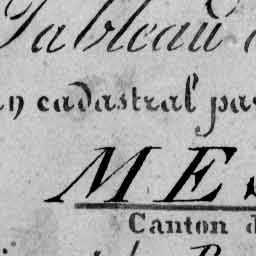 Tableau
cadastral par
MES
Canton d